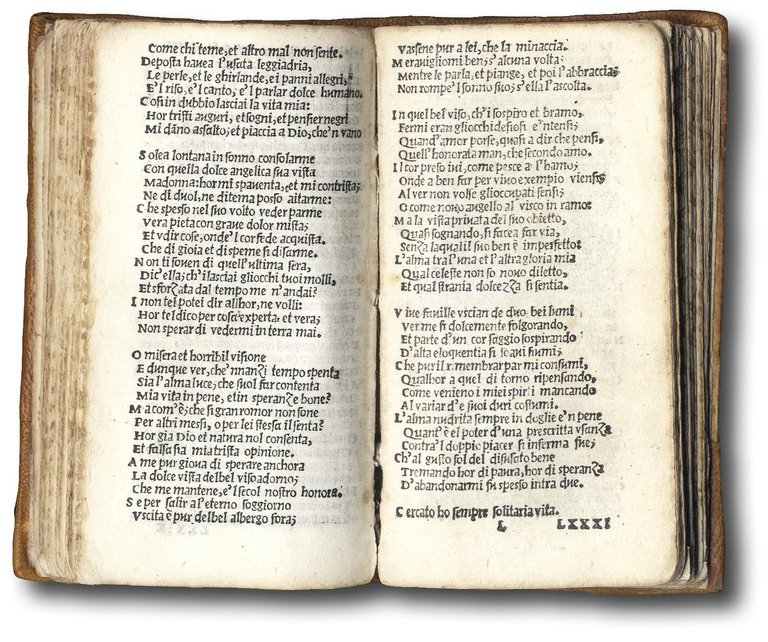 Come chi teme, et altro mal non sente.
Deposta havea l'usata leggiadria,
Le perle, et le ghirlande, ei panni allegri,
E'l riso, e'l canto, e'l parlar dolce humano.
Cosi in dubbio lasciai la vita mia:
Hor tristi auguri, et sogni, et pensier negri
Mi dāno assalto; et piaccia a Dio, che'n vano
Solea lontana in sonno consolarme
Con quella dolce angelica sua vista
Madonna: hor mi spaventa, et mi contrista;
Ne di duol, ne di tema posso aitarme:
Che spesso nel suo volto veder parme
Vera pieta con grave dolor mista;
Et udir cose, onde'l cor fede acquista,
Che di gioia et di speme si disarme.
Non ti soven di quell'ultima sera,
Dic'ella; ch'i lasciai gliocchi tuoi molli,
Et sforzata dal tempo me n'andai?
I non tel potei dir allhor, ne volli:
Hor tel dico per cosa experta et vera;
Non sperar di vedermi in terra mai.
O misera et horribil visione
E dunque ver, che'nnanzi tempo spenta
Sia l'alma luce; che suol far contenta
Mia vita in pene, et in speranze bone?
Ma com'è; che si gran romor non sone
Per altri messi, o per lei stessa il senta?
Hor gia Dio et natura nol consenta,
Et falsa sia mia trista opinione.
A me pur giova di sperare anchora
La dolce vista del bel viso adorno;
Che me mantene, e'l secol nostro honora.
Se per salir al'eterno soggiorno
Uscita è pur del bel albergo fora;
Vassene pur a lei, che la minaccia.
Meravigliomi ben; s'alcuna volta;
Mentre le parla, et piange, et poi l'abbraccia;
Non rompe'l sonno suo; s'ella l'ascolta.
In quel bel viso, ch'i sospiro et bramo,
Fermi eran gliocchi desiosi e'ntensi;
Quand'amor porse, quasi a dir che pensi,
Quell'honorata man, che secondo amo.
Il cor preso ivi, come pesce a l'hamo;
Onde a ben far per vivo exempio viensi;
Al ver non volse glioccupati sensi;
O come novo augello al visco in ramo:
Ma la vista privata del suo obietto,
Quasi sognando, si facea far via,
Senza la qual il suo ben è imperfetto:
L'alma tra l'una et l'altra gloria mia
Qual celeste non so novo diletto,
Et qual strania dolcezza si sentia.
Vive faville uscian de duo bei lumi
Ver me si dolcemente folgorando,
Et parte d'un cor saggio sospirando
D'alta eloquentia si soavi fiumi;
Che pur il rimembrar par mi consumi,
Qualhor a quel di torno ripensando,
Come venieno i miei spirti mancando
Al variar d'e suoi duri costumi.
L'alma nudrita sempre in doglie e'n pene
Quant'è el poter d'una prescritta usanza
Contra'l doppio piacer si inferma fue;
Ch'al gusto sol del disusato bene
Tremando hor di paura, hor di speranza
D'abandonarmi fu spesso intra due.
Cercato ho sempre solitaria vita.
L LXXXI